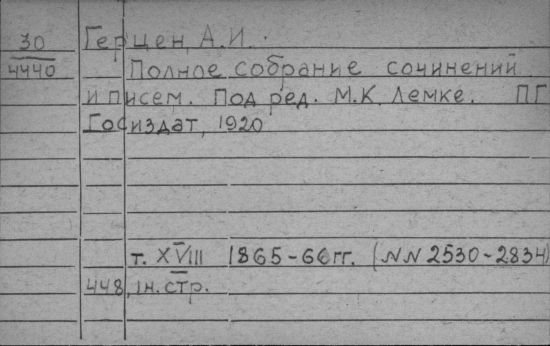 30 Герцен, А.И.
4440 Полное собрание сочинений
и писем. Под ред. М.К. Лемке. ПГ
Госиздат, 1920
т. XVIII 1865-66 гг. (NN 2530-2834)
448, ін. стр.